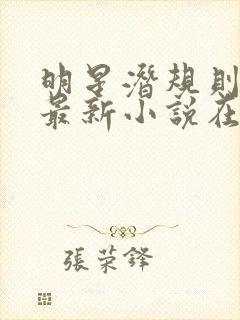 明星潛規則
最新小說在
張荣鐸